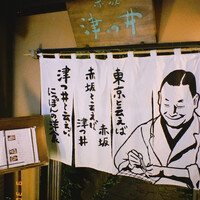 赤坂
津つ井
東京と云えば
赤坂
赤坂と云えば
津つ井
津つ井と云えば
にっぽんの洋食